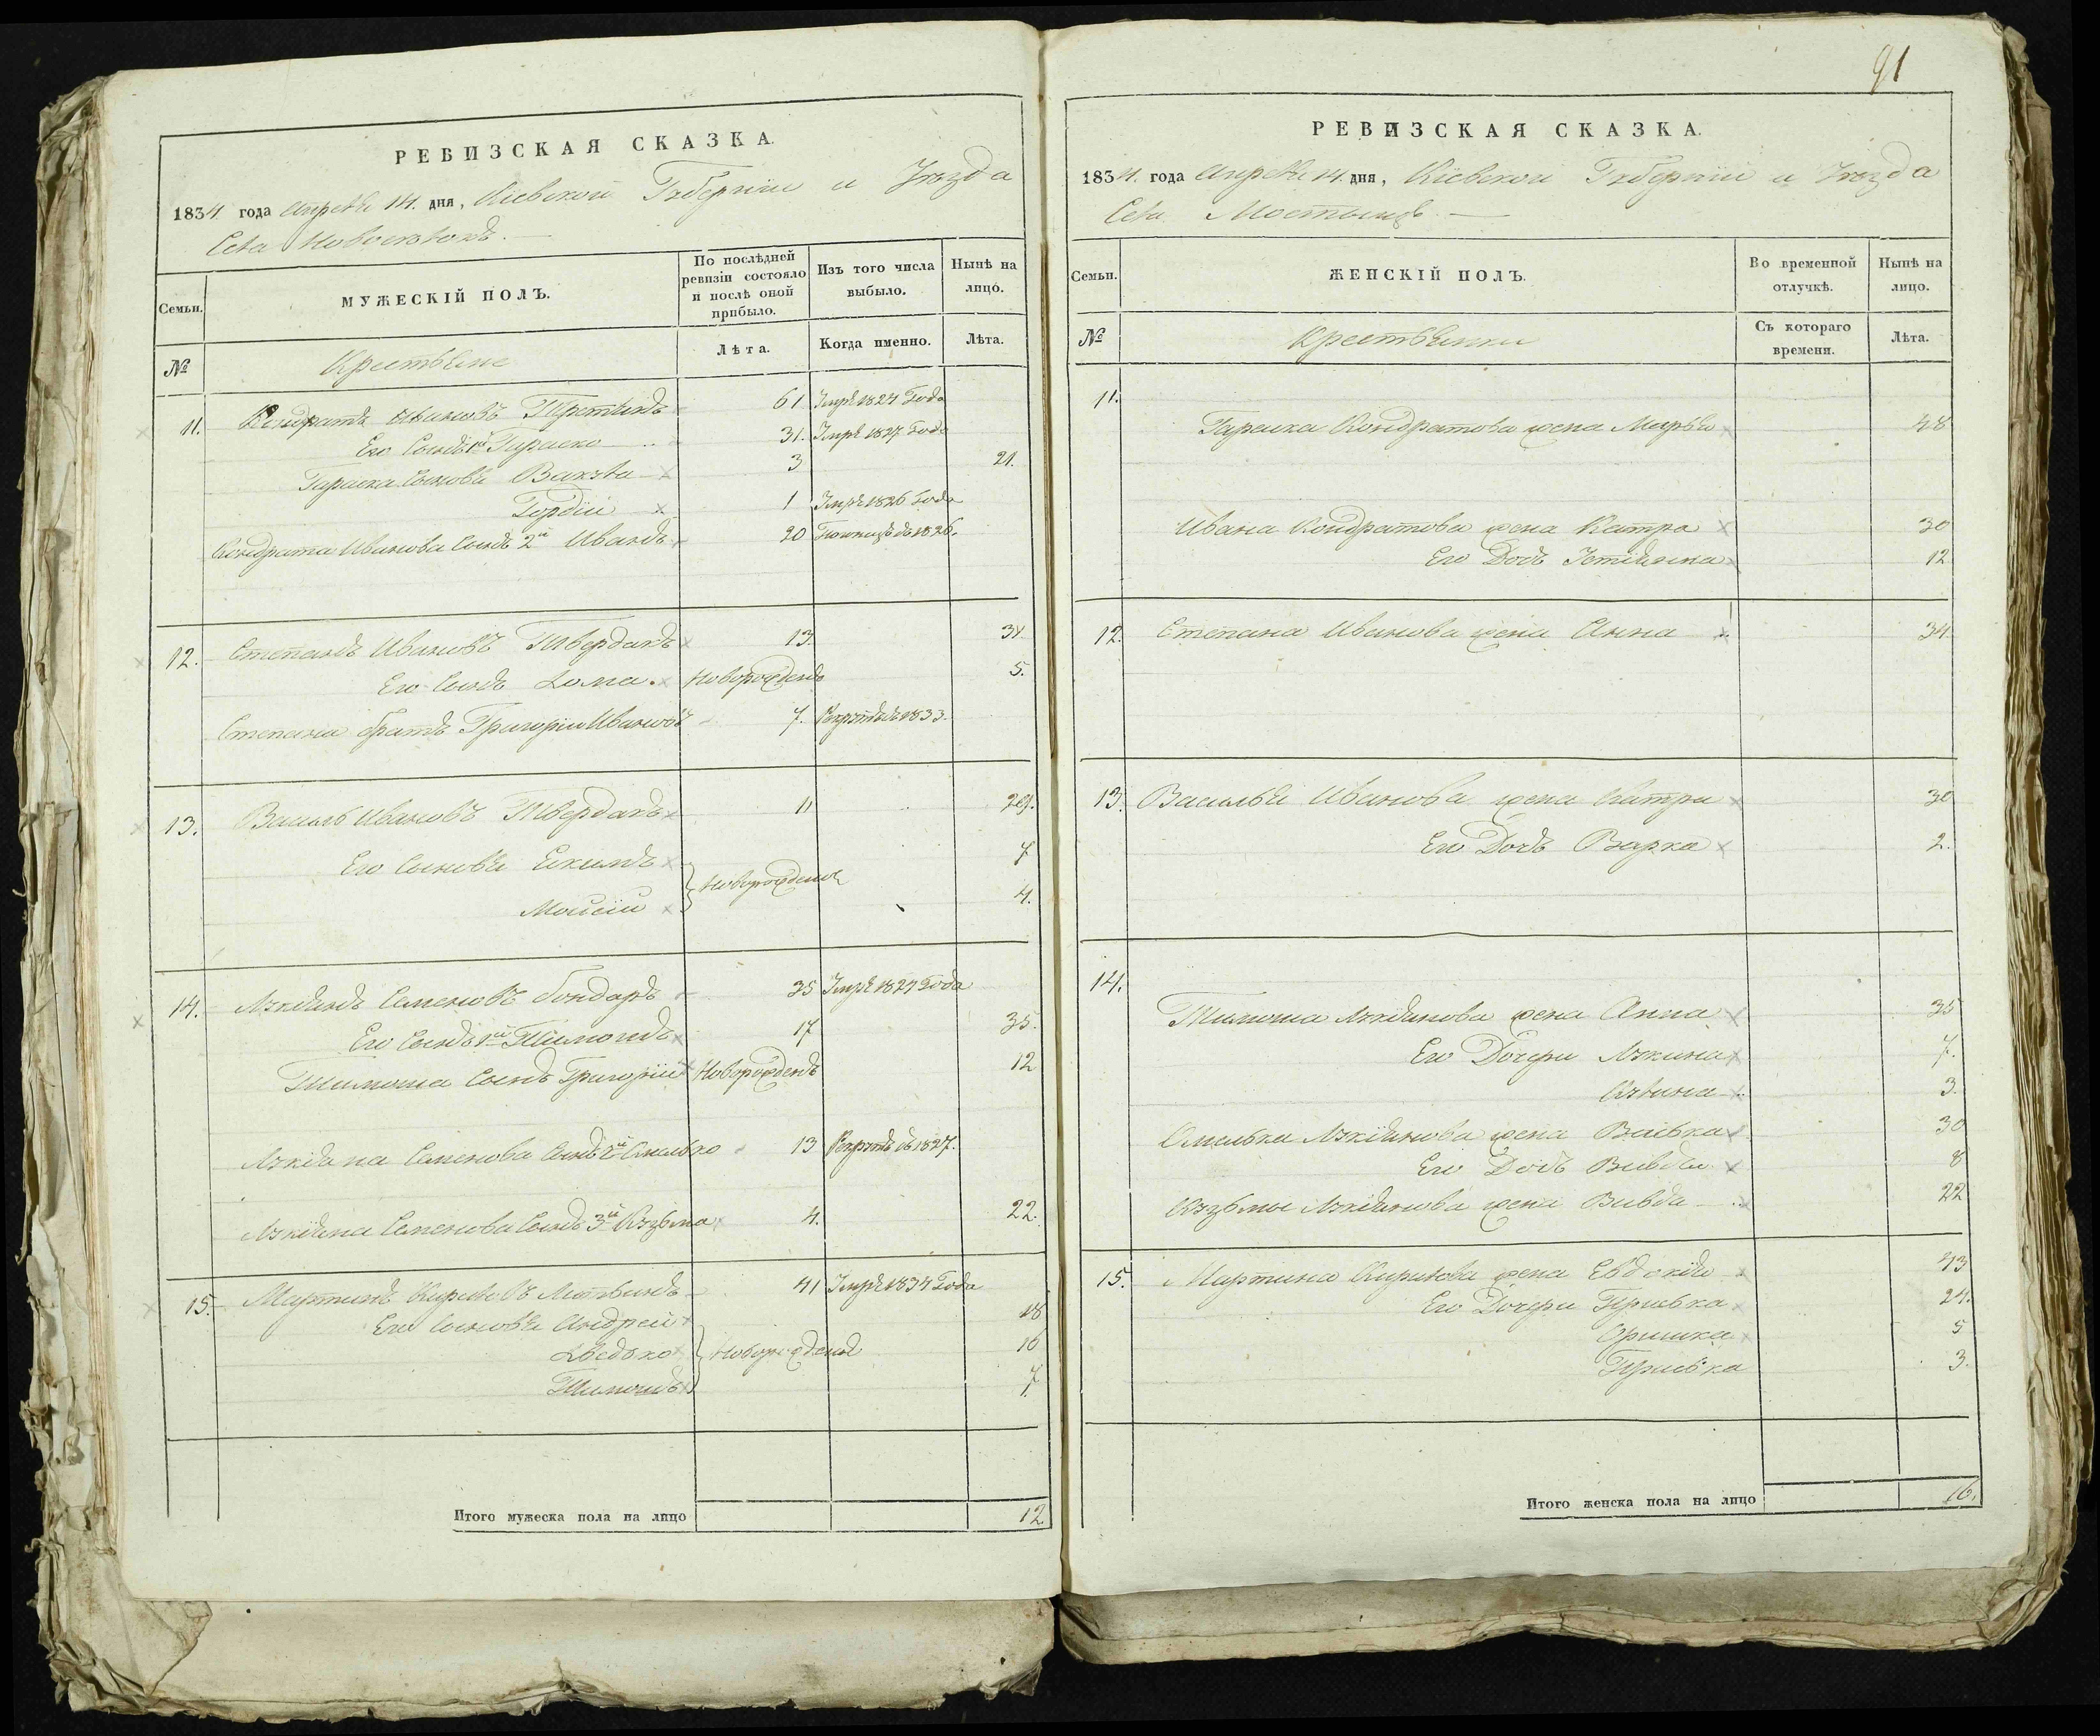 91
РЕВИЗСКАЯ СКАЗКА.
1834 года Апреля 14. дня, Кіевской Губерніи и Уезда
Села
МУЖЕСКІЙ ПОЛЪ.
Семьи.
По послѣдней ревизіи состояло и послѣ оной прибыло.
Изъ того числа выбыло.
Нынѣ на лицо.
№
Крестьяне
Лѣта.
Когда именно.
Лѣта.
11. Кондратъ Ивановъ 61 Умре 1824 Года
Его Сынъ 1й Тараско 31. Умре 1827 Года
Тараска Сыновья Вакула 3 21.
Гордій 1 Умре 1826 Года
Кондрата Иванова Сынъ 2й Иванъ 20 въ 1826.
12. Степанъ Ивановъ Твердакъ 13. 31.
Его Сынъ Ѳома Новорожденъ 5.
Степана братъ Григорій Ивановъ 7. Рекрутъ въ 1833.
13. Василь Ивановъ Твердакъ 11 29.
Его Сыновья Екимъ 7
Новорожденые
Мойсій 4.
14. Лукіянъ Семеновъ Бондаръ 35 Умре 1827 Года
Его Сынъ 1й Тимошъ 17 35.
Тимоша Сынъ Григорій Новорожденъ 12
Лукіяна Семенова Сынъ 2й Омелько 13 Рекрутъ въ 1827.
Лукіяна Семенова Сынъ 3й Кузьма 4. 22.
15. Мартинъ Кириловъ Литвинъ 41 Умре 1834 Года
Его Сыновья Андрей 18
Ѳедько Новорожденые 16
Тимошъ 7.
Итого мужеска пола на лицо 12.
РЕВИЗСКАЯ СКАЗКА.
1834. года Апреля 14. дня, Кіевской Губерніи и Уезда
Села Мостыщъ
Семьи.
ЖЕНСКІЙ ПОЛЪ.
Во временной отлучкѣ.
Нынѣ на лицо.
№
Крестьянки
Съ котораго времени.
Лѣта.
11.
Тараска Кондратова жена Марья 48
Ивана Кондратова жена Катра 30
Его Дочь Устіяна 12
12. Степана Иванова жена Анна 34
13. Василья Иванова жена Катра 30
Его Дочь Варка 2.
14.
Тимоша Лукіянова жена Анна 35
Его Дочери Лукина 7.
Кулина 3.
Омелька Лукіянова жена Васька 30
Его Дочь Вивдя 8
Кузьмы Лукіянова жена Вивдя 22
15. Мартина Кирилова жена Евдокія 43
Его Дочери Приська 24.
Оришка 5
Приська 3.
Итого женска пола на лицо 16.